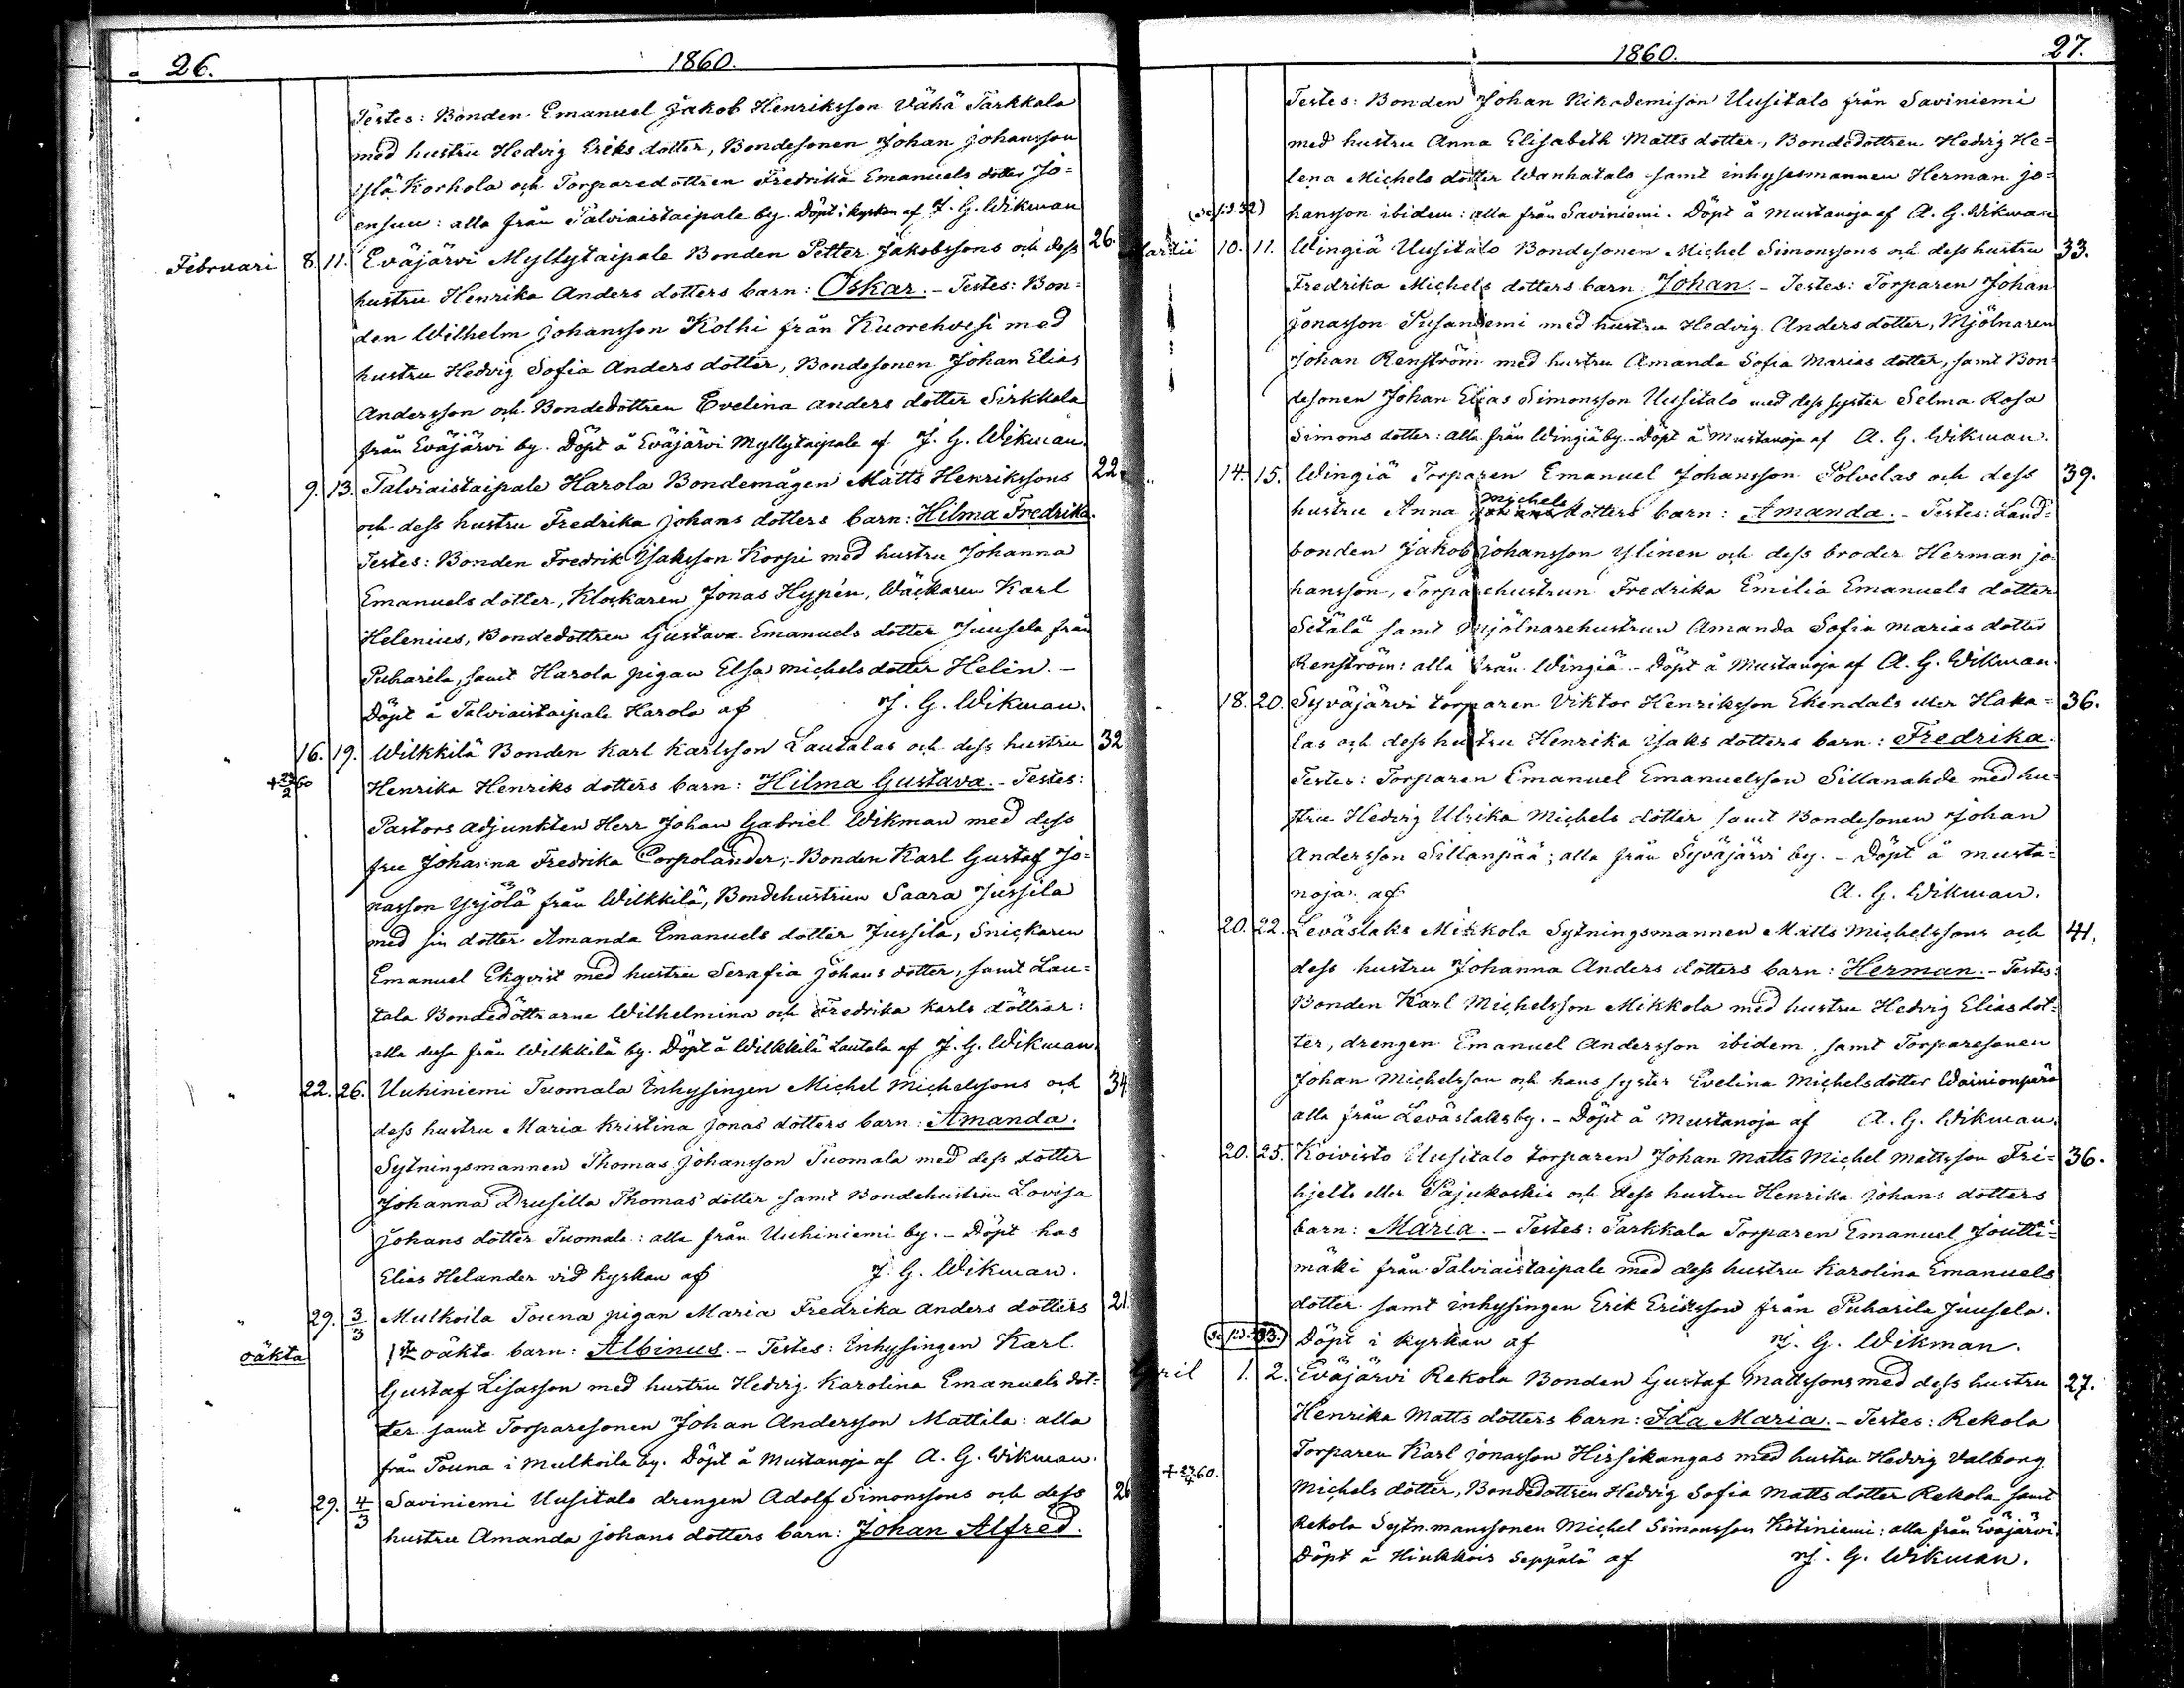 26.
1860.
Testes: Bonden Emanuel Jakob Henriksson Vähä Tarkkala
med hustru Hedvig Eriks dotter, Bondesonen Johan Johansson
Ylä Korhola och Torparedottren Fredrika Emanuels dotter Jo=
ensuu: alla från Talviaistaipale by. Döpt i kyrkan af J. G. Wikman
Februari 8. 11. Eväjärvi Myllytaipale Bonden Petter Jakobssons och dess 26.
hustru Henrika Anders dotters barn: Oskar. - Testes: Bon=
den Wilhelm Johansson Kolhi från Kuorehvesi med
hustru Hedvig Sofia Anders dotter, Bondesonen Johan Elias
Andersson och Bondedottren Evelina Anders dotter Sirkkala
från Eväjärvi by. Döpt å Eväjärvi Myllytaipale af J. G. Wikman.
" 9. 13. Talviaistaipale Harola Bondemågen Matts Henrikssons 22.
och dess hustru Fredrika Johans dotters barn: Hilma Fredrika.
Testes: Bonden Fredrik Isaksson Korpi med hustru Johanna
Emanuels dotter, Klockaren Jonas Hypén, Wäckaren Karl
Helenius, Bondedottren Gustava Emanuels dotter Juusela från
Puharila, samt Harola pigan Elsa Michels dotter Helin. -
Döpt å Talviaistaipale Harola af J. G. Wikman.
" 16. 19. Wilkkilä Bonden Karl Karlsson Lautalas och dess hustru 32
Henrika Henriks dotters barn: Hilma Gustava. - Testes:
Pastors adjunkten Herr Johan Gabriel Wikman med dess
fru Johanna Fredrika Corpolander; - Bonden Karl Gustaf Jo=
nasson Yrjölä från Wilkkilä, Bondehustrun Saara Jussila
med sin dotter Amanda Emanuels dotter Jussila, Snickaren
Emanuel Ekqvist med hustru Serafia Johans dotter, samt Lau=
tala Bondedöttrarna Wilhelmina och Fredrika Karls döttrar:
alla dessa från Wilkkilä by. Döpt å Wilkkilä Lautala af J. G. Wikman.
" 22. 26. Uuhiniemi Tuomala Inhysingen Michel Michelssons och 34
dess hustru Maria Kristina Jonas dotters barn: Amanda.
Sytningsmannen Thomas Johansson Tuomala med dess dotter
Johanna Drusilla Thomas dotter samt Bondehustrun Lovisa
Johans dotter Tuomala: alla från Uuhiniemi by. - Döpt hos
Elias Helander vid kyrkan af J. G. Wikman.
" 29. 3/3 Mulkoila Touna pigan Maria Fredrika Anders dotters 21
oäkta 1sta oäkta barn: Albinus. - Testes: Inhysingen Karl
Gustaf Lisasson med hustru Hedvig Karolina Emanuels dot=
ter samt Torparesonen Johan Andersson Mattila: alla
från Touna i Mulkoila by. Döpt å Mustanoja af A. G. Wikman.
" 29. 4/3 Saviniemi Uusitalo drengen Adolf Simonssons och dess 26
hustru Amanda Johans dotters barn: Johan Alfred.
1860.
27.
Testes: Bonden Johan Nikodemison Uusitalo från Saviniemi
med hustru Anna Elisabeth Matts dotter, Bondedottren Hedvig He=
lena Michels dotter Wanhatalo samt inhysesmannen Herman Jo=
hansson ibidem: alla från Saviniemi. Döpt å Mustanoja af A. G. Wikman
Martii 10. 11. Wingiä Uusitalo Bondesonen Michel Simonssons och dess hustru 33.
Fredrika Michels dotters barn: Johan. - Testes: Torparen Johan
Jonasson Susaniemi med hustru Hedvig Anders dotter, Mjölnaren
Johan Renström med hustru Amanda Sofia Marias dotter, samt Bon=
desonen Johan Elias Simonsson Uusitalo med dess syster Selma Rosa
Simons dotter: alla från Wingiä by. - Döpt å Mustanoja af A. G. Wikman.
" 14. 15. Wingiä Torparen Emanuel Johansson Solvelas och dess 39.
hustru Anna Michels dotters barn: Amanda. - Testes: Land=
bonden Jakob Johansson Ylinen och dess broder Herman Jo=
hansson, Torparehustrun Fredrika Emilia Emanuels dotter
Setälä samt Mjölnarehustrun Amanda Sofia Marias dotter
Renström: alla från Wingiä. - Döpt å Mustanoja af A. G. Wikman.
18. 20. Syväjärvi torparen Viktor Henriksson Ekendals eller Haka= 36.
las och dess hustru Henrika Isaks dotters barn: Fredrika.
Testes: Torparen Emanuel Emanuelsson Sillanahde med hu=
stru Hedvig Ulrika Michels dotter samt Bondesonen Johan
Andersson Sillanpää; alla från Syväjärvi by. - Döpt å Musta=
noja af A. G. Wikman.
20. 22. Leväslaks Mikkola Sytningsmannen Matts Michelssons och 41.
dess hustru Johanna Anders dotters barn: Herman. - Testes:
Bonden Karl Michelsson Mikkola med hustru Hedvig Elias dot=
ter, drengen Emanuel Andersson ibidem samt Torparesonen
Johan Michelsson och hans syster Evelina Michels dotter Wainionpää
alla från Leväslaks by. - Döpt å Mustanoja af A. G. Wikman.
20. 25. Koivisto Uusitalo torparen Johan Matts Michel Mattsson Fri= 36.
hjelts eller Pajukoskis och dess hustru Henrika Johans dotters
barn: Maria. - Testes: Tarkkala Torparen Emanuel Joutti=
mäki från Talviaistaipale med dess hustru Karolina Emanuels
dotter samt inhysingen Erik Eriksson från Puharila Juusela.
(se sid. 33.) Döpt i kyrkan af J. G. Wikman.
April 1. 2. Eväjärvi Rekola Bonden Gustaf Mattssons med dess hustru 27.
Henrika Matts dotters barn: Ida Maria. - Testes: Rekola
Torparen Karl Jonasson Hirsikangas med hustru Hedvig Valborg
Michels dotter, Bondedottren Hedvig Sofia Matts dotter Rekola samt
Rekola Sytn.manssonen Michel Simonsson Kotiniemi: alla från Eväjärvi.
Döpt å Hiukkois Seppälä af J. G. Wikman.